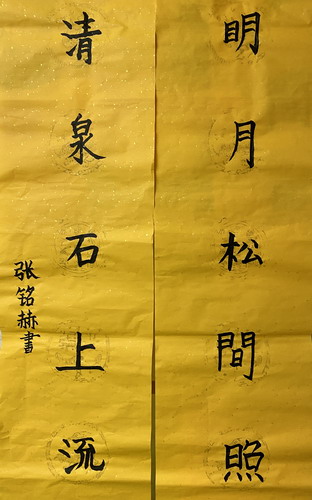 明月松間照
清泉石上流
张铭赫書